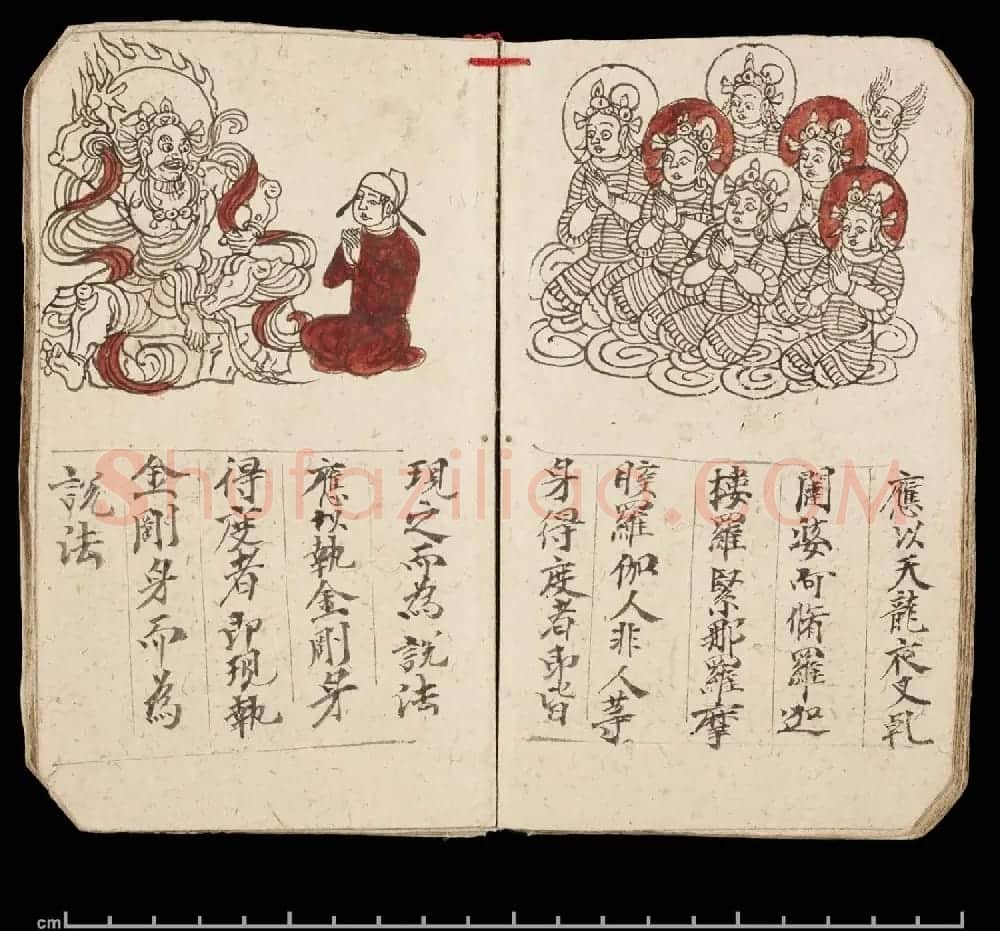 應以天龍夜叉乹
闥婆阿脩羅迦
樓羅緊那羅摩
睺羅伽人非人等
身得度者即皆
現之而為説法
應以執金剛身
得度者即現執
金剛身而為
説法
Shufaziliao.COM
cm